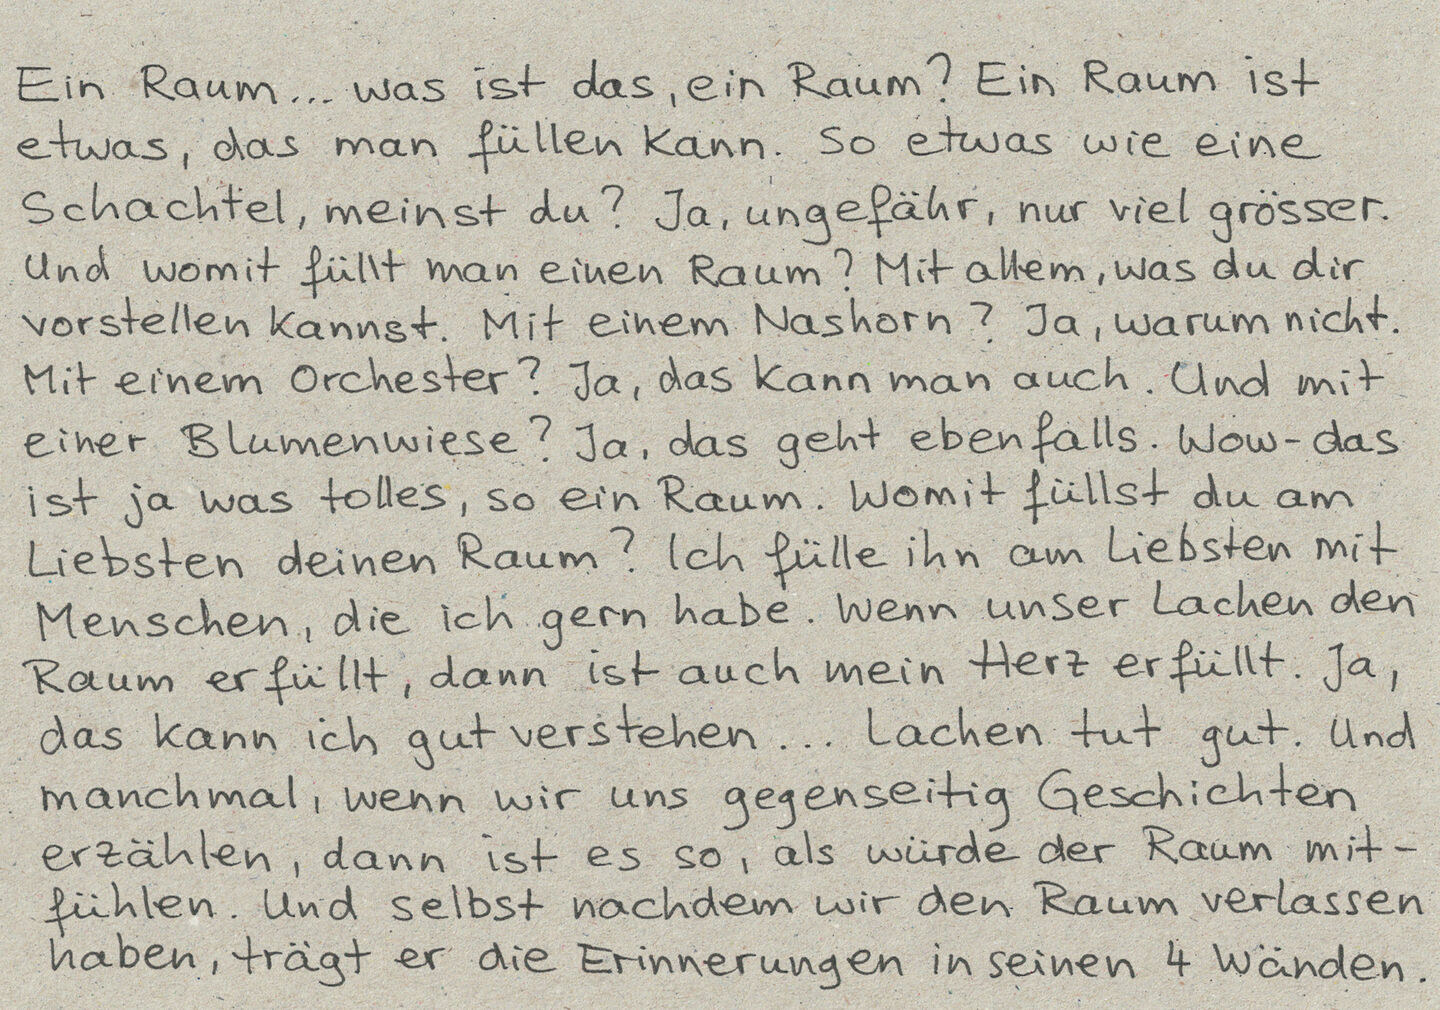 Ein Raum... was ist das, ein Raum? Ein Raum ist
etwas, das man füllen kann. So etwas wie eine
Schachtel, meinst du? Ja, ungefähr, nur viel grösser.
Und womit füllt man einen Raum? Mit allem, was du dir
vorstellen kannst. Mit einem Nashorn? Ja, warum nicht.
Mit einem Orchester? Ja, das kann man auch. Und mit
einer Blumenwiese? Ja, das geht ebenfalls. Wow - das
ist ja was tolles, so ein Raum. Womit füllst du am
Liebsten deinen Raum? Ich fülle ihn am Liebsten mit
Menschen, die ich gern habe. Wenn unser Lachen den
Raum erfüllt, dann ist auch mein Herz erfüllt. Ja,
das kann ich gut verstehen... Lachen tut gut. Und
manchmal, wenn wir uns gegenseitig Geschichten
erzählen, dann ist es so, als würde der Raum mit-
fühlen. Und selbst nachdem wir den Raum verlassen
haben, trägt er die Erinnerungen in seinen 4 Wänden.